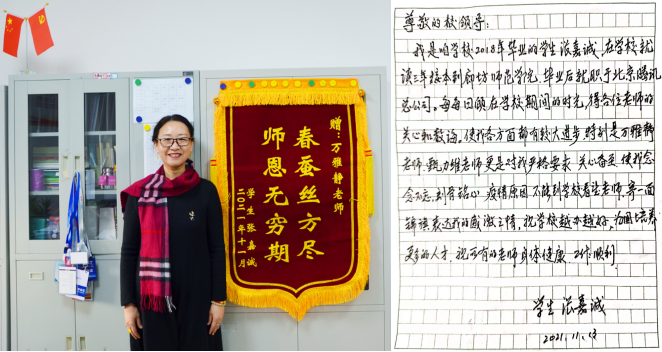 赠：万雅静老师
春蚕丝方尽
师恩无穷期
学生张嘉诚
二〇二一年十一月
尊敬的校领导：
我是咱学校2018年毕业的学生张嘉诚，在学校就
读三年后本到廊坊师范学院，毕业后就职于北京腾讯
总公司。每每回顾在学校期间的时光，得各位老师的
关心和教诲，使我各方面都有较大进步，特别是万雅静
老师、甄力维老师更是对我严格要求，关心备至，使我念
念不忘，刻骨铭心，疫情原因不能到学校看望老师，寄一面
锦旗表达我的感激之情，祝学校越办越好，为国培养
更多的人才，祝所有的老师身体健康 工作顺利
学生 张嘉诚
2021.11.